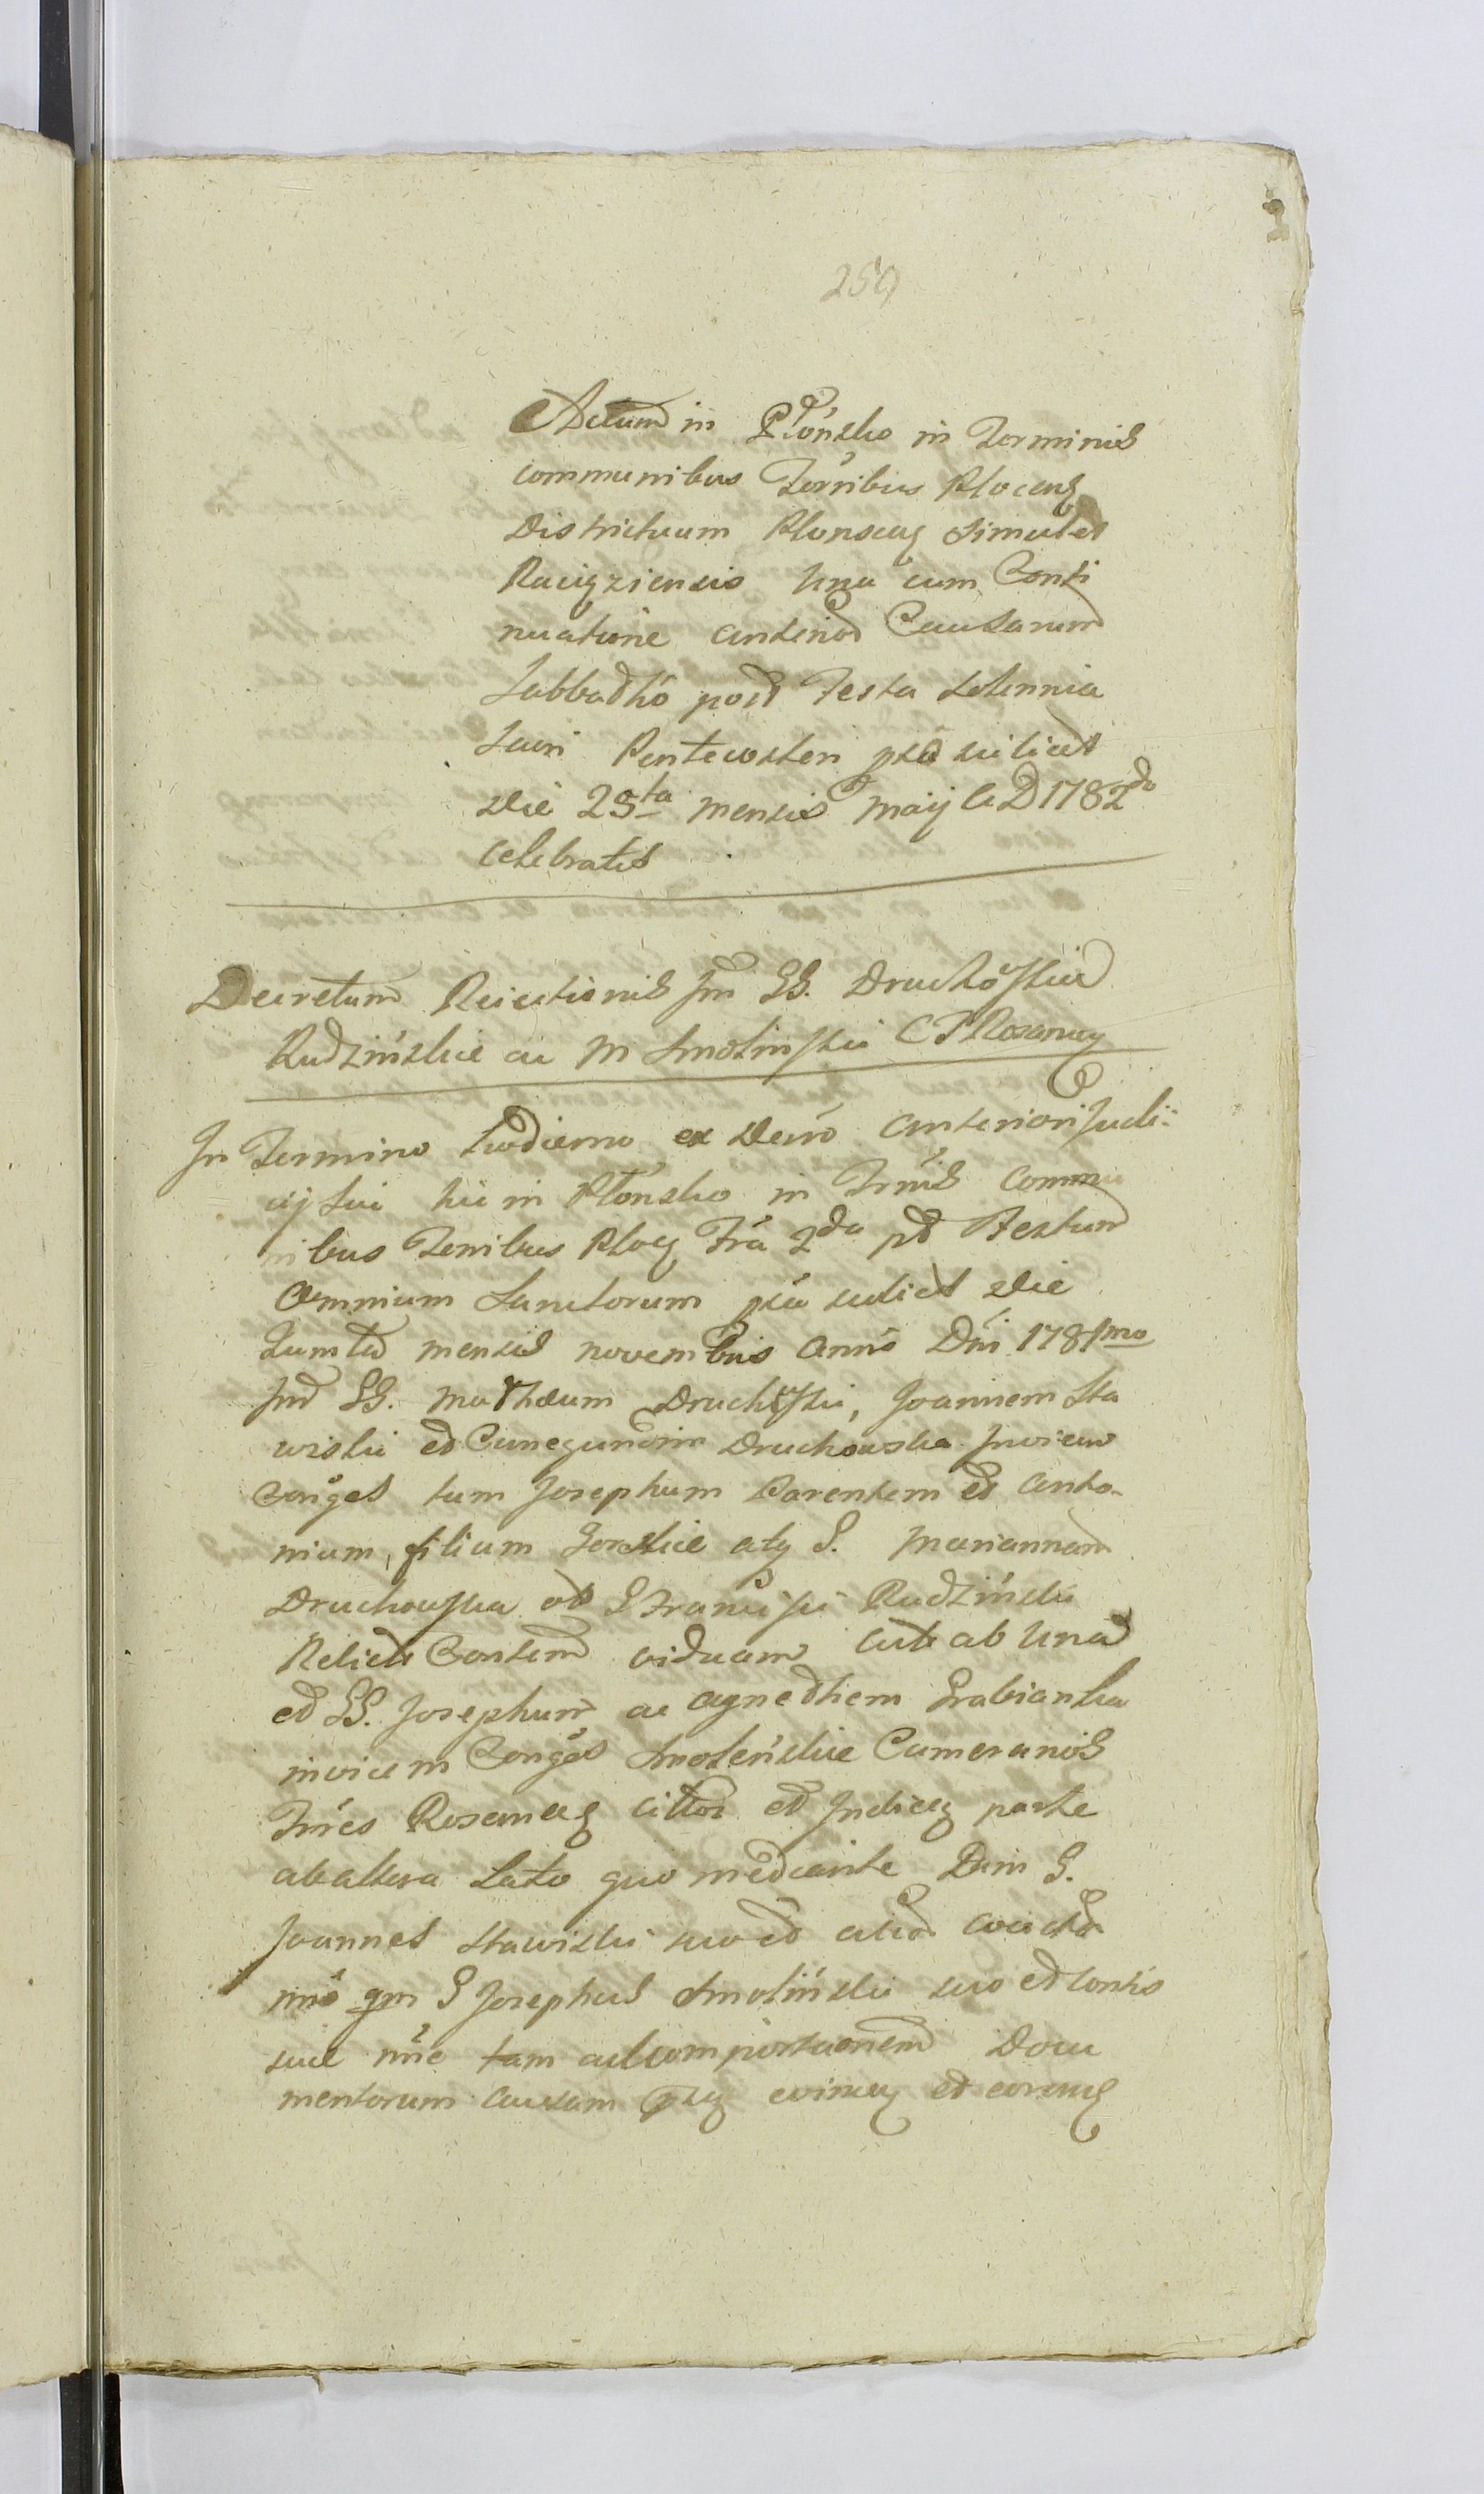 259
Actum in Płońsko in Terminis
communibus Terribus Plocens
Districtuum Plonscens simul et
Raciąziensis una cum Conti
nuatione anterior Causarum
Sabbatho post Festa solennia
Sacri Pentecosten pta scilicet
die 25ta mensis Maij A D 1782do
celebratis
Decretum Reiectionis Jnr GG. Druchowskie
Rudzińskie ac M Smolinskie C T Rosanens
In Termino hodierno ex Decrō anteriori Judi-
cij sui hic in Płonsko in Trmis Commu
nibus Terribus Ploc Fria 2da pt Festum
Omnium Sanctorum pta scilicet die
mensis novembris Annō Dni 1781mo
Jnr GG. Mathæum Druchowski, Joannem Sta
wiski et Cunegundim Druchowska Invicem
Conjges tum Josephum Parentem et Anto-
nium, filium Gorskie atq G. Mariannam
Druchowska ot G Francisci Rudzinski
Relicta Contem viduam ab Una
et GG. Josephum ac Agnethem Grabianka
invicem Conjges Smoleńskie Cameranos
Trres Rosanens citto et parte
ab altera Lato quo mediante Dum G.
Joannes Stawiski suo et alior
nnō G Josephus Smoliński suo et Contis
suæ nnie tam ad comportaonem Docu
mentorum causam et